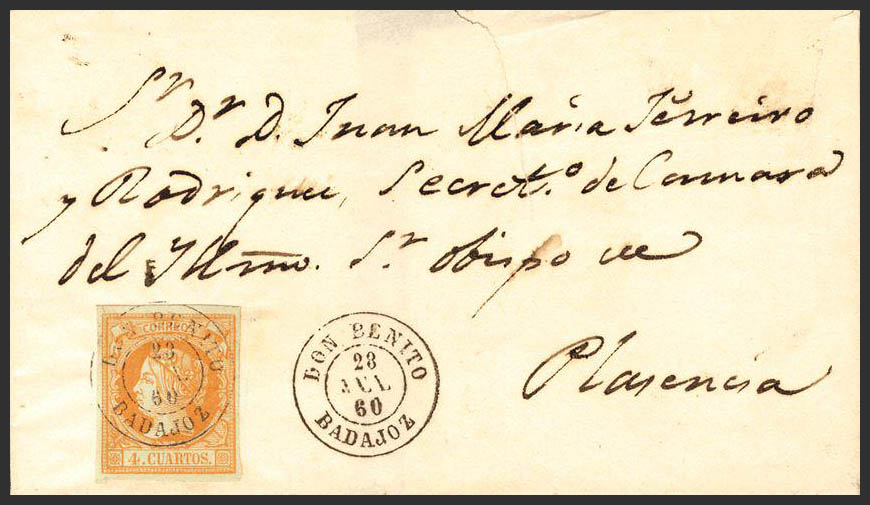 Sr. Dr. D. Juan Maria Ferreiro
y Rodriguez, Secret.º de Camara
del Yllmo. Sr. obispo de
Plasencia
DON BENITO
28
JUL
60
BADAJOZ
CORREOS
DON BENITO
28
60
BADAJOZ
4. CUARTOS.